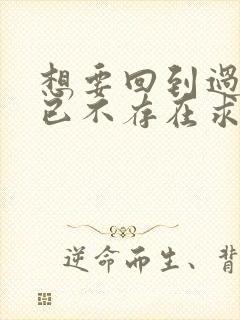 想要回到過
已不存在求
逆命而生、背